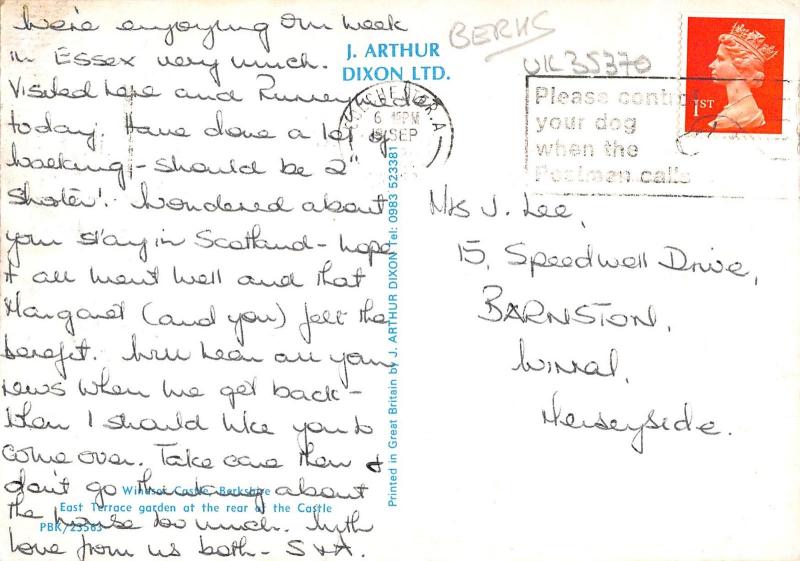 We're enjoying our week
in Essex very much.
Visited here and Runnymede
today. Have done a lot of
walking - should be 2"
shorter! Wondered about
your stay in Scotland - hope
it all went well and that
Margaret (and you) felt the
benefit. Will hear all your
news when we get back -
then I should like you to
come over. Take care then &
don't go about
the house too much. With
love from us both - S & A.
Windsor Castle, Berkshire
East Terrace garden at the rear of the Castle
PBK/23563
J. ARTHUR
DIXON LTD.
Printed in Great Britain by J. ARTHUR DIXON Tel: 0983 523381
BERKS
UK35370
COLCHESTER. A
6 15PM
SEP
Please control
your dog
when the
Postman calls
1ST
Mrs J. Lee,
15, Speedwell Drive,
BARNSTON,
Wirral,
Merseyside.